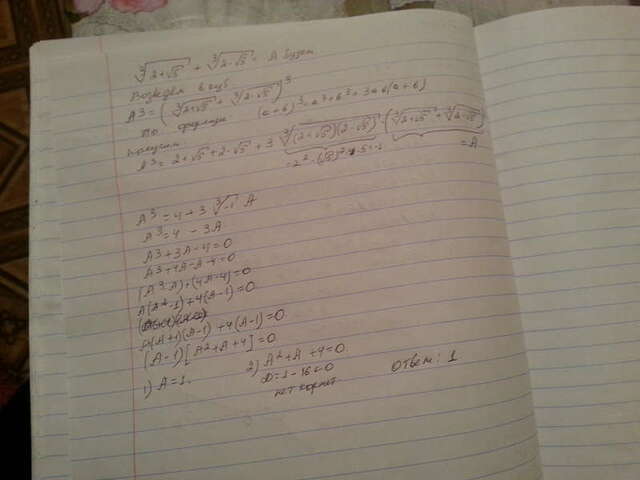 ∛(2+√5) + ∛(2-√5) = A
Возведём в куб
A³ = (∛(2+√5) + ∛(2-√5))³
По формуле (a+b)³ = a³+b³+3ab(a+b)
получим
A³ = 2+√5+2-√5+3∛((2+√5)(2-√5)) (∛(2+√5)+∛(2-√5))
=A
A³ = 4+3∛-1 A
A³ = 4 - 3A
A³+3A-4=0
A³+4A-A-4=0
(A³-A)+(4A-4)=0
A(A²-1)+4(A-1)=0
A(A+1)(A-1)+4(A-1)=0
(A-1)[A²+A+4]=0
1) A=1.
2) A²+A+4=0
D=1-16<0
нет корней
Ответ: 1